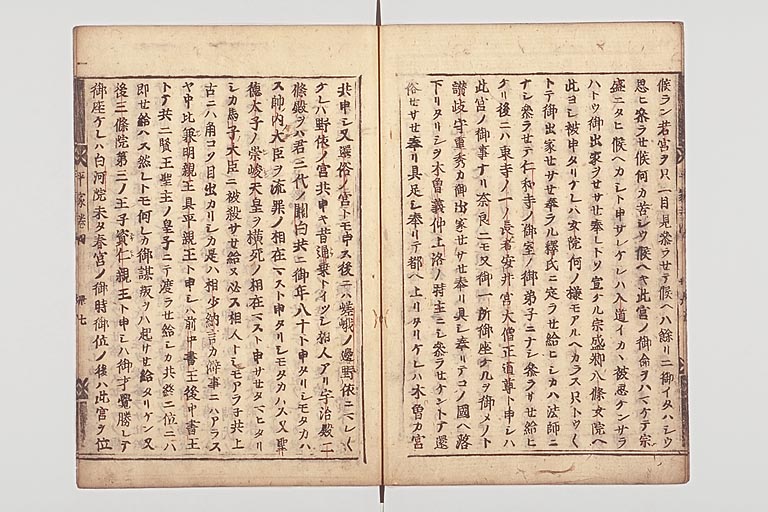 候ラン若宮ヲ只一目見参ラセテ候ヘハ餘リニ御イタハシウ
思ヒ参ラせ候何カ苦シウ候ヘキ此宮ノ御命ヲハマケテ宗
盛ニタヒ候ヘカシト申サレケレハ入道イカヽ被思ケンサラ
ハトウ御出家ヲサせ奉レトソ宣ケル宗盛卿八條女院ヘ
此ヨシ被申タリケレハ女院何ノ様モアルヘカラス只トウ〱
トテ御出家せサせ奉ラル釋氏ニ定ラせ給ヒシカハ法師ニ
ナシ参ラせテ仁和寺ノ御室ノ御弟子ニナシ参ラサせ給ヒ
ケリ後ニハ東寺ノ一ノ長者安井宮大僧正道尊ト申シハ
此宮ノ御事ナリ奈良ニモ又御一所御座ケルヲ御メノト
讃岐守重秀カ御出家せサせ奉リ具シ奉リテコノ國ヘ落
下リタリシヲ木曽義仲上洛ノ時主ニシ参ラせケントテ還
俗せサせ奉リ具足シ奉リテ都ヘ上リタリケレハ木曽カ宮
共申シ又還俗ノ宮トモ申ス後ニハ嵯峨ノ邊野依ニマシ〱
ケレハ野依ノ宮共申キ昔通乗トイツシ相人アリ宇治殿二
條殿ヲハ君三代ノ關白共ニ御年八十ト申タリシモタカハ
ス帥内大臣ヲ流罪ノ相在マスト申タリシモタカハス又聖
徳太子ノ崇峻天皇ヲ横死ノ相在マスト申サせタマヒタリ
シカ馬子大臣ニ被殺サせ給又必ス相人トシモアラ子共上
古ニハ角コソ目出カリシカ是ハ相少納言カ僻事ニハアラス
ヤ中比兼明親王具平親王ト申シハ前中書王後中書王
トテ共ニ賢王聖主ノ皇子ニテ渡ラせ給シカ共終ニ位ニハ
即せ給ハス然レトモ何レカ御謀叛ヲハ起サせ給タリケン又
後三條院第三ノ王子資仁親王ト申シハ御才覺勝レテ
御座ケレハ白河院未タ春宮ノ御時御位ノ後ハ此宮ヲ位
平家巻四